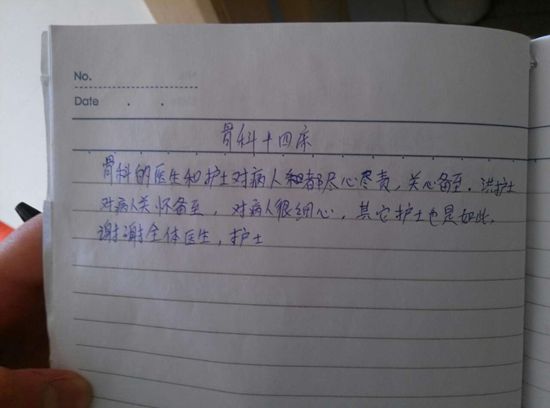 No.
Date . .
骨科十四床
骨科的医生和护士对病人都尽心尽责,关心备至.洪护士
对病人关怀备至,对病人很细心,其它护士也是如此.
谢谢全体医生,护士